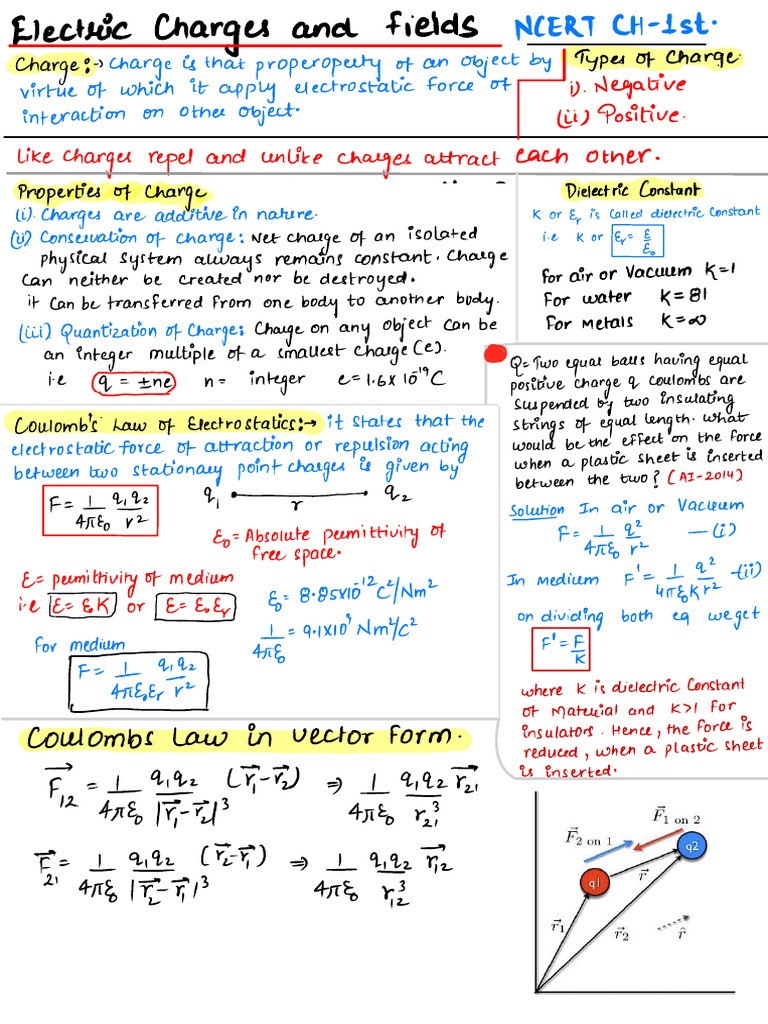 Electric Charges and Fields NCERT CH-1st.
Charge:→ Charge is that properopelty of an object by
virtue of which it apply electrostatic force of
interaction on other object.
Types of Charge
i). Negative
(ii) Positive.
Like charges repel and unlike charges attract each other.
Properties of Charge
(i). Charges are additive in nature.
(ii) Conservation of charge: Net charge of an isolated
physical system always remains constant. Charge
can neither be created nor be destroyed.
it can be transferred from one body to another body.
(iii) Quantization of Charge: Charge on any object can be
an integer multiple of a smallest charge (e).
i.e q = ±ne n = integer e = 1.6 x 10⁻¹⁹C
Dielectric Constant
K or εr is called dielectric constant
i.e K or εr = ε/ε₀
For air or Vacuum K=1
For water K = 81
For Metals K = ∞
Q= Two equal balls having equal
positive charge q coulombs are
suspended by two insulating
strings of equal length. What
would be the effect on the force
when a plastic sheet is inserted
between the two? (AI-2014)
Solution In air or Vacuum
F = 1/4πε₀ q²/r² —(i)
In medium F' = 1/4πε₀K q²/r² —(ii)
on dividing both eq we get
F' = F/K
where K is dielectric constant
of Material and K>1 for
insulators. Hence, the force is
reduced, when a plastic sheet
is inserted.
Coulomb's Law of Electrostatics:→ it states that the
electrostatic force of attraction or repulsion acting
between two stationary point charges is given by
F = 1/4πε₀ q₁q₂/r² q₁ r q₂
ε₀ = Absolute permittivity of
free space.
ε = permittivity of medium
i.e ε = ε₀K or ε = ε₀εr
ε₀ = 8.85x10⁻¹² C²/Nm²
1/4πε₀ = 9.1x10⁹ Nm²/C²
for medium
F = 1/4πε₀εr q₁q₂/r²
Coulombs Law in vector form.
F⃗₁₂ = 1/4πε₀ q₁q₂/|r⃗₁-r⃗₂|³ (r⃗₁-r⃗₂) ⇒ 1/4πε₀ q₁q₂/r₂₁³ r⃗₂₁
F⃗₂₁ = 1/4πε₀ q₁q₂/|r⃗₂-r⃗₁|³ (r⃗₂-r⃗₁) ⇒ 1/4πε₀ q₁q₂/r₁₂³ r⃗₁₂
F⃗₁ on 2
F⃗₂ on 1
q2
q1
r⃗
r⃗₁
r⃗₂
r̂